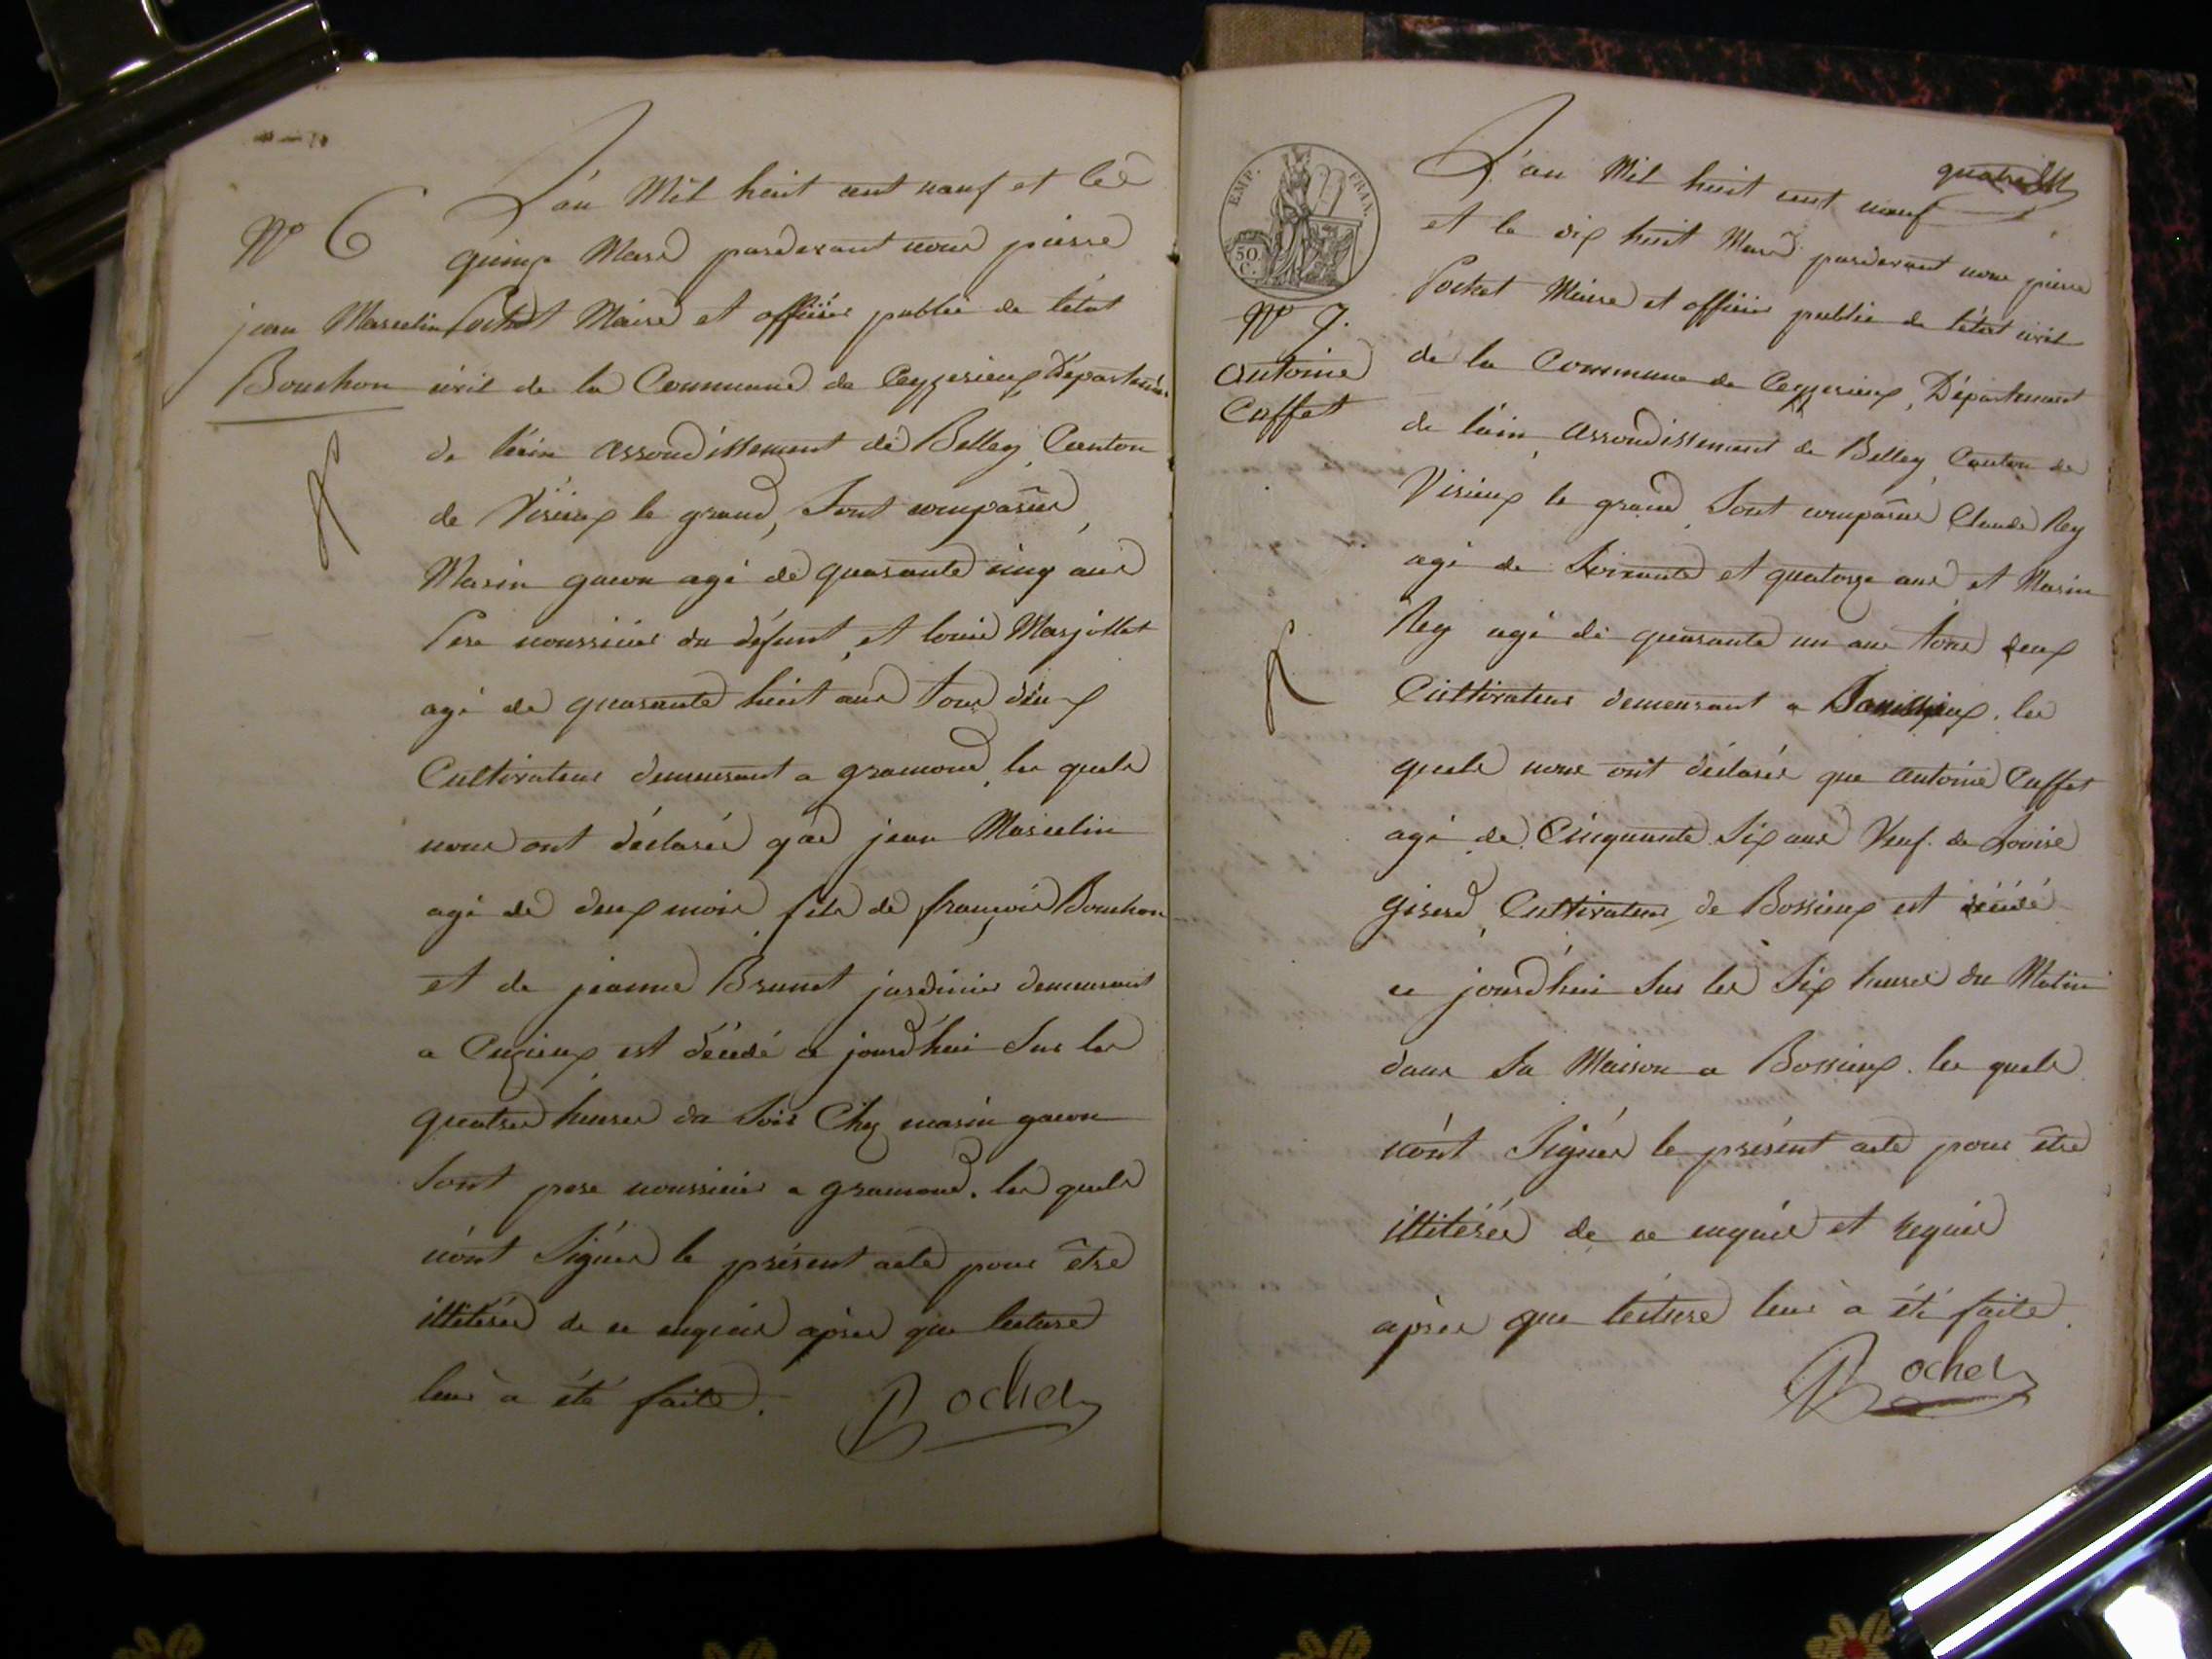 N° 6
jean Marcelin
Bouchon
L'an Mil huit cent neuf et le
quinze Mars pardevant nous pierre
Pochet Maire et officier public de l'état
civil de la Commune de Ceyzerieux, Départemen
de l'ain arrondissement de Belley, Canton
de Virieux le grand, Sont comparus,
Marin gacon agé de quarante cinq ans
Pere nourricier du défunt, et louis Marjollet
agé de quarante huit ans tous deux
Cultivateurs demeurant a gramond, les quels
nous ont déclarés que jean Marcelin
agé de deux mois, fils de françois Bouchon
et de jeanne Brunet jardinier demeurant
a Cuzieux est décédé ce jourd'hui Sur les
quatre heures du Soir Chez marin gacon
Sont pere nourricier a gramond. les quels
n'ont Signés le présent acte pour être
illitérés de ce enquis après que lecture
leur a été faite.
Pochet
quatre
EMP. FRAN.
50 C.
N° 7.
Antoine
Cuffet
L'an Mil huit cent neuf
et le dix huit Mars pardevant nous pierre
Pochet Maire et officier public de l'état civil
de la Commune de Ceyzerieux, Département
de l'ain, arrondissement de Belley, Canton de
Virieux le grand, Sont comparus Claude Rey
agé de Soixante et quatorze ans, et Marin
Rey agé de quarante un ans tous deux
Cultivateurs demeurant a les
quels nous ont déclarés que antoine Cuffet
agé de Cinquante Six ans Veuf de Louise
giserd, Cultivateur, de Bossieux est décédé
ce jourd'hui Sur les Six heures du Matin
dans Sa Maison a Bossieux. les quels
n'ont Signés le présent acte pour être
illitérés de ce enquis et requis
après que lecture leur a été faite.
Pochet